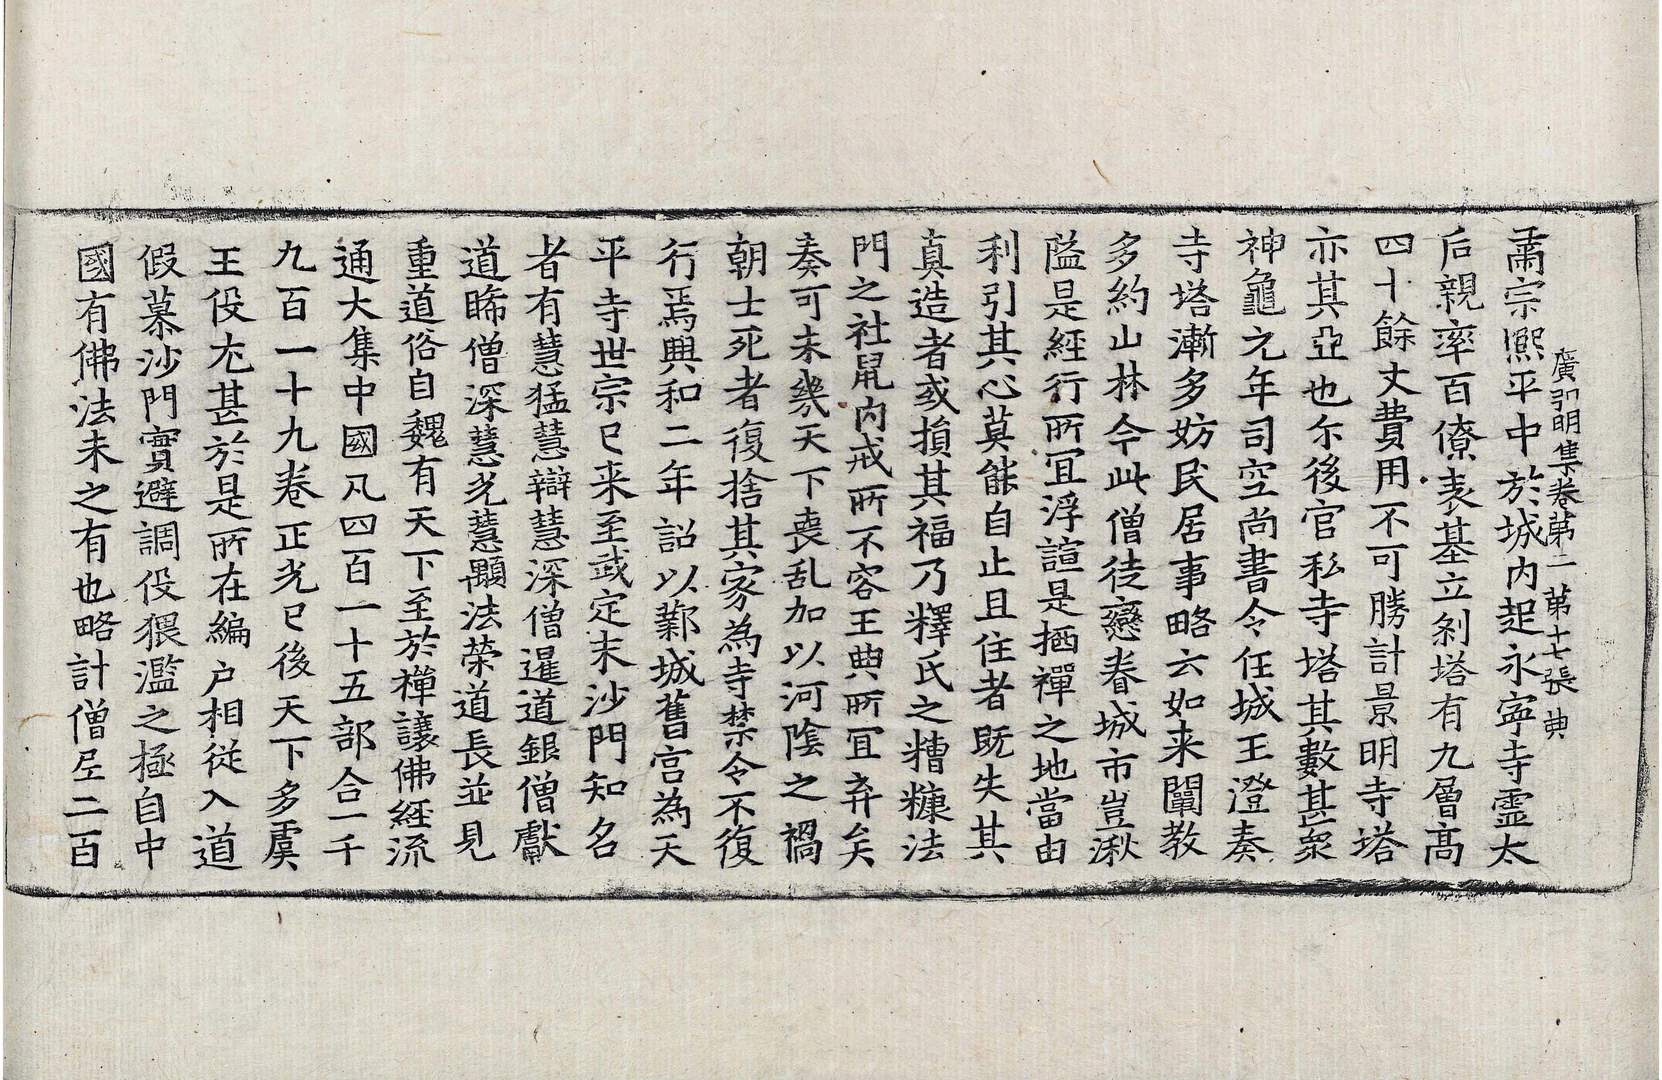 廣弘明集卷第二　第十七張　典
肅宗熈平中於城內起永寧寺霊太
后親率百僚表基立剎塔有九層髙
四十餘丈費用不可勝計景明寺塔
亦其亞也尒後官私寺塔其數甚衆
神龜元年司空尚書令任城王澄奏
寺塔漸多妨民居事略云如来闡教
多約山林今此僧徒戀着城市豈湫
隘是經行所冝浮諠是捿禪之地當由
利引其心莫能自止且住者既失其
真造者或損其福乃釋氏之糟糠法
門之社鼠內戒所不容王典所冝弃矣
奏可未幾天下喪乱加以河陰之禍
朝士死者復捨其家為寺禁令不復
行焉興和二年詔以鄴城舊宫為天
平寺世宗已来至武定末沙門知名
者有慧猛慧辯慧深僧暹道銀僧獻
道晞僧深慧光慧顯法榮道長並見
重道俗自魏有天下至於禪讓佛經流
通大集中國凡四百一十五部合一千
九百一十九卷正光已後天下多虞
王役尤甚於是所在編户相從入道
假慕沙門實避調役猥濫之極自中
國有佛法未之有也略計僧尼二百